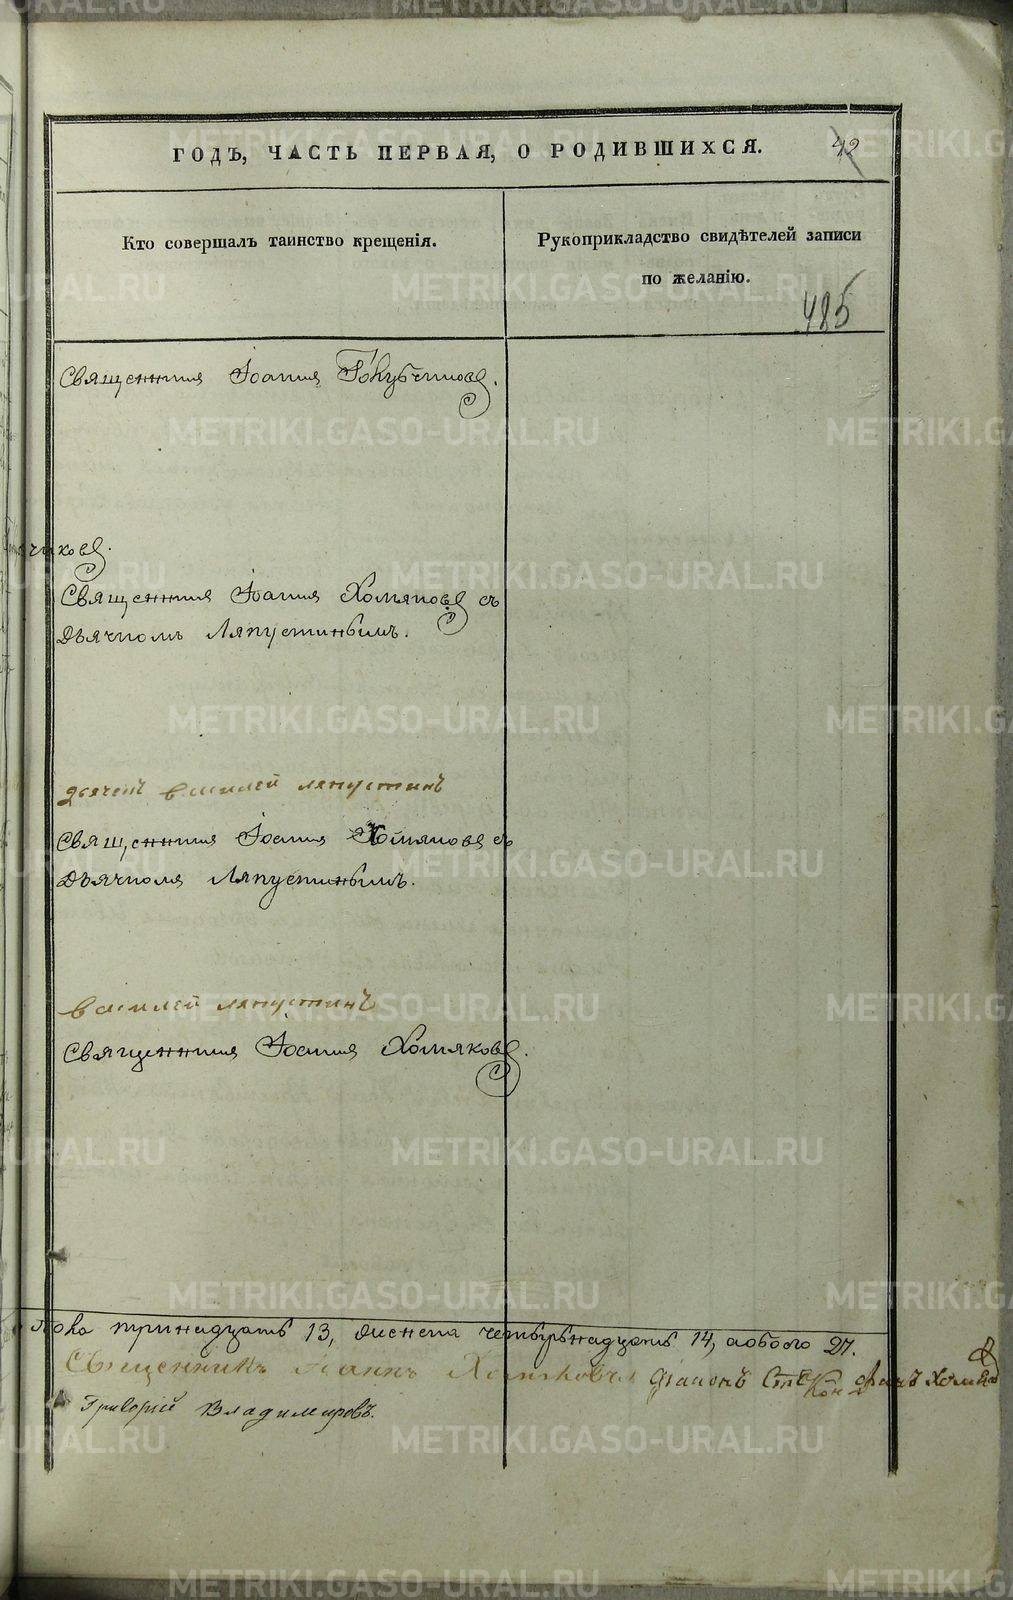 ГОДЪ, ЧАСТЬ ПЕРВАЯ, О РОДИВШИХСЯ.
42
Кто совершалъ таинство крещенія.
Рукоприкладство свидѣтелей записи
по желанію.
485
Священникъ Іоаннъ
чиковъ.
Священникъ Іоаннъ Хомяковъ съ
Дьячкомъ Ляпустинымъ.
дьячекъ василей ляпустинъ
Священникъ Іоаннъ Хомяковъ съ
Дьячкомъ Ляпустинымъ.
василей ляпустинъ
Священникъ Іоаннъ Хомяковъ.
пола тринадцать 13, женска четырнадцать 14, а обоего 27.
Священникъ Іоаннъ Хомяковъ діаконъ Хомяковъ
Григорій Владимировъ.
METRIKI.GASO-URAL.RU